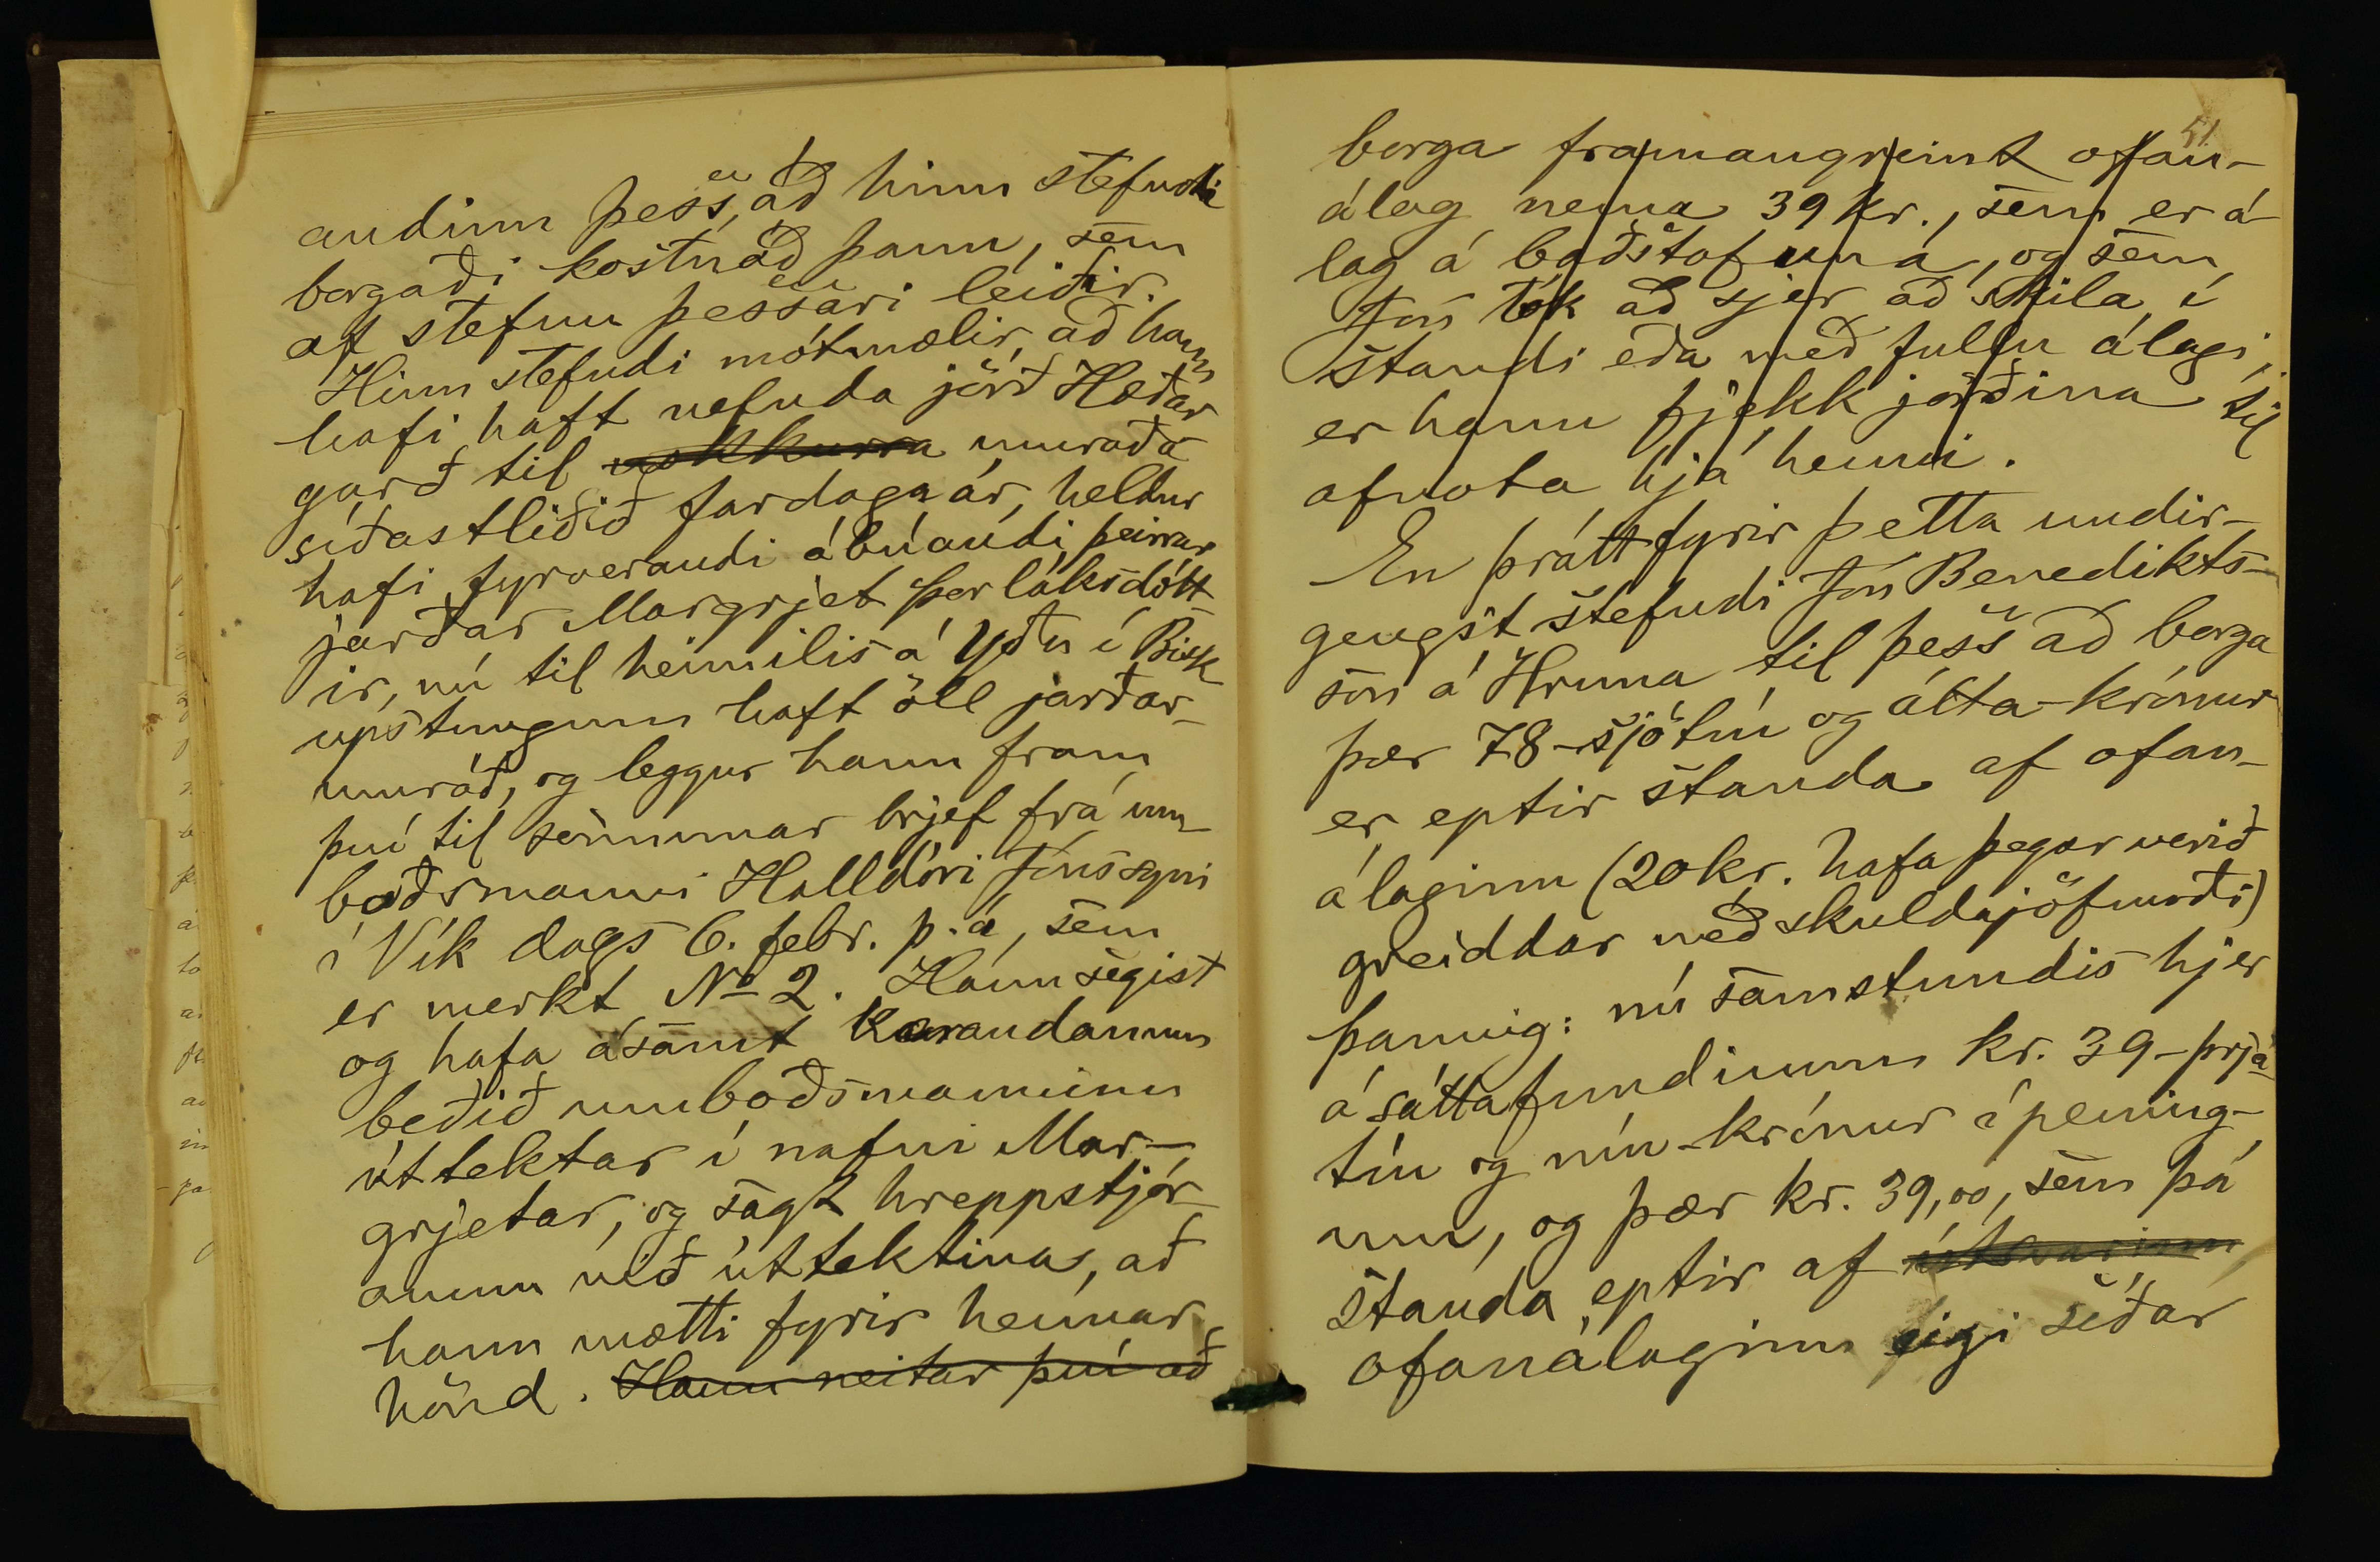 andinn þess, að hinn stefndi
borgaði kostnað þann, sem
af stefnu þessari leiðir.
Hinn stefndi mótmælir, að hann
hafi haft nefnda jörð Hæðar
garð til nokkurra umráða
síðastliðið fardaga ár, heldur
hafi fyrverandi ábúandi þeirrar
jarðar Margrjet Þorláksdótt
ir, nú til heimilis á Yðu í Bisk
upstungum haft öll jarðar-
umráð, og leggur hann fram
því til sönnunar brjef frá um
boðsmanni Halldóri Jónssyni
í Vík dags 6. febr. þ. á, sem
er merkt No 2. Hann segist
og hafa ásamt kærandanum
beðið umboðsmanninn
úttektar í nafni Mar-
grjetar, og sagt hreppstjór
anum við úttektina, að
hann mætti fyrir hennar
hönd. Hann neitar því að
51
borga framangreint ofan-
álag nema 39 kr., sem er á-
lag á baðstofuna, og sem
Jón tók að sjer að skila í
standi eða með fullu álagi,
er hann fjekk jörðina til
afnota hjá henni.
En þrátt fyrir þetta undir-
gengst stefndi Jón Benedikts-
son á Hruna til þess að borga
þær 78 - sjötíu og átta - krónur
er eptir standa af ofan-
álaginu (20 kr. hafa þegar verið
greiddar með skuldajöfnuði)
þannig: nú samstundis hjer
á sáttafundinum kr. 39 - þrjá-
tíu og níu - krónur í pening-
um, og þær kr. 39,00, sem þá
standa eptir af útsvarinu
ofanálaginu eigi síðar